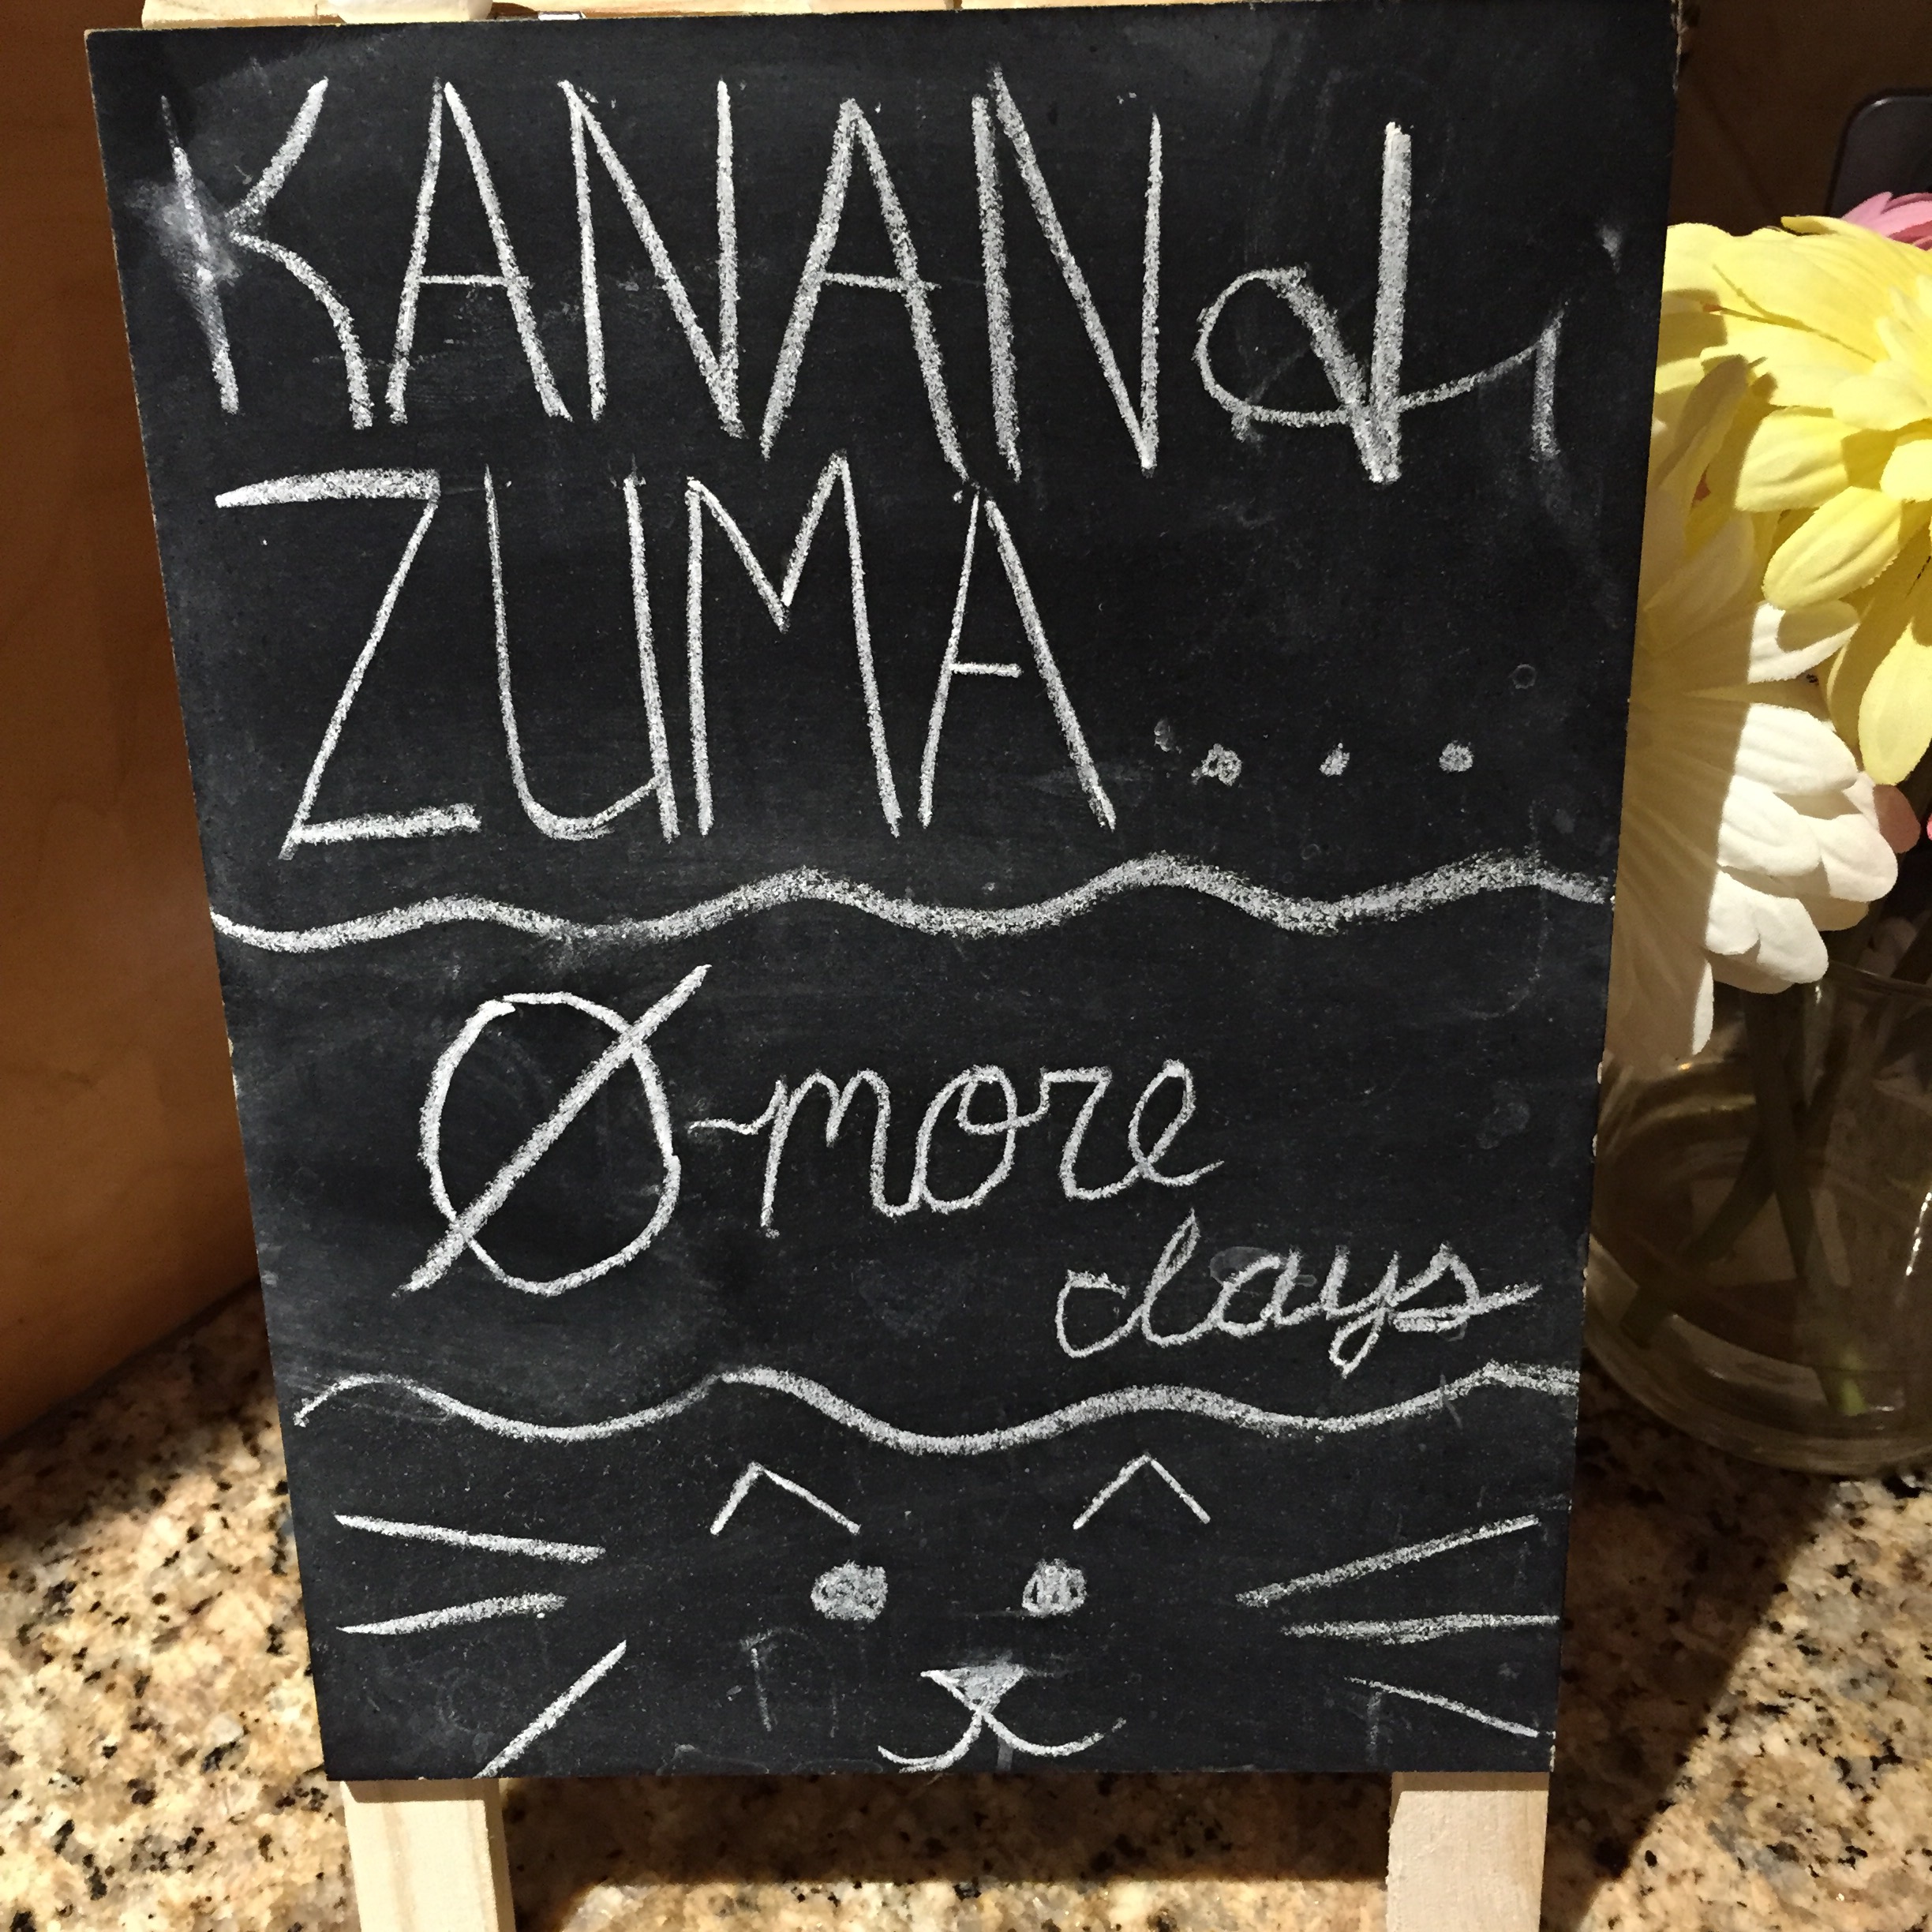 KANAN &
ZUMA...
Ø more
days